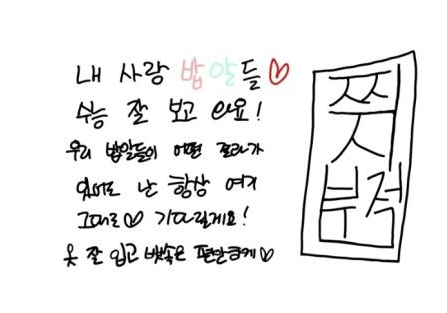 내 사랑 밥알들♡
수능 잘 보고 와요!
우리 밥알들이 어떤 결과가
있어도 난 항상 여기
그대로♡ 기다릴게요!
옷 잘 입고 뱃속은 편안하게♡
쀡
부적